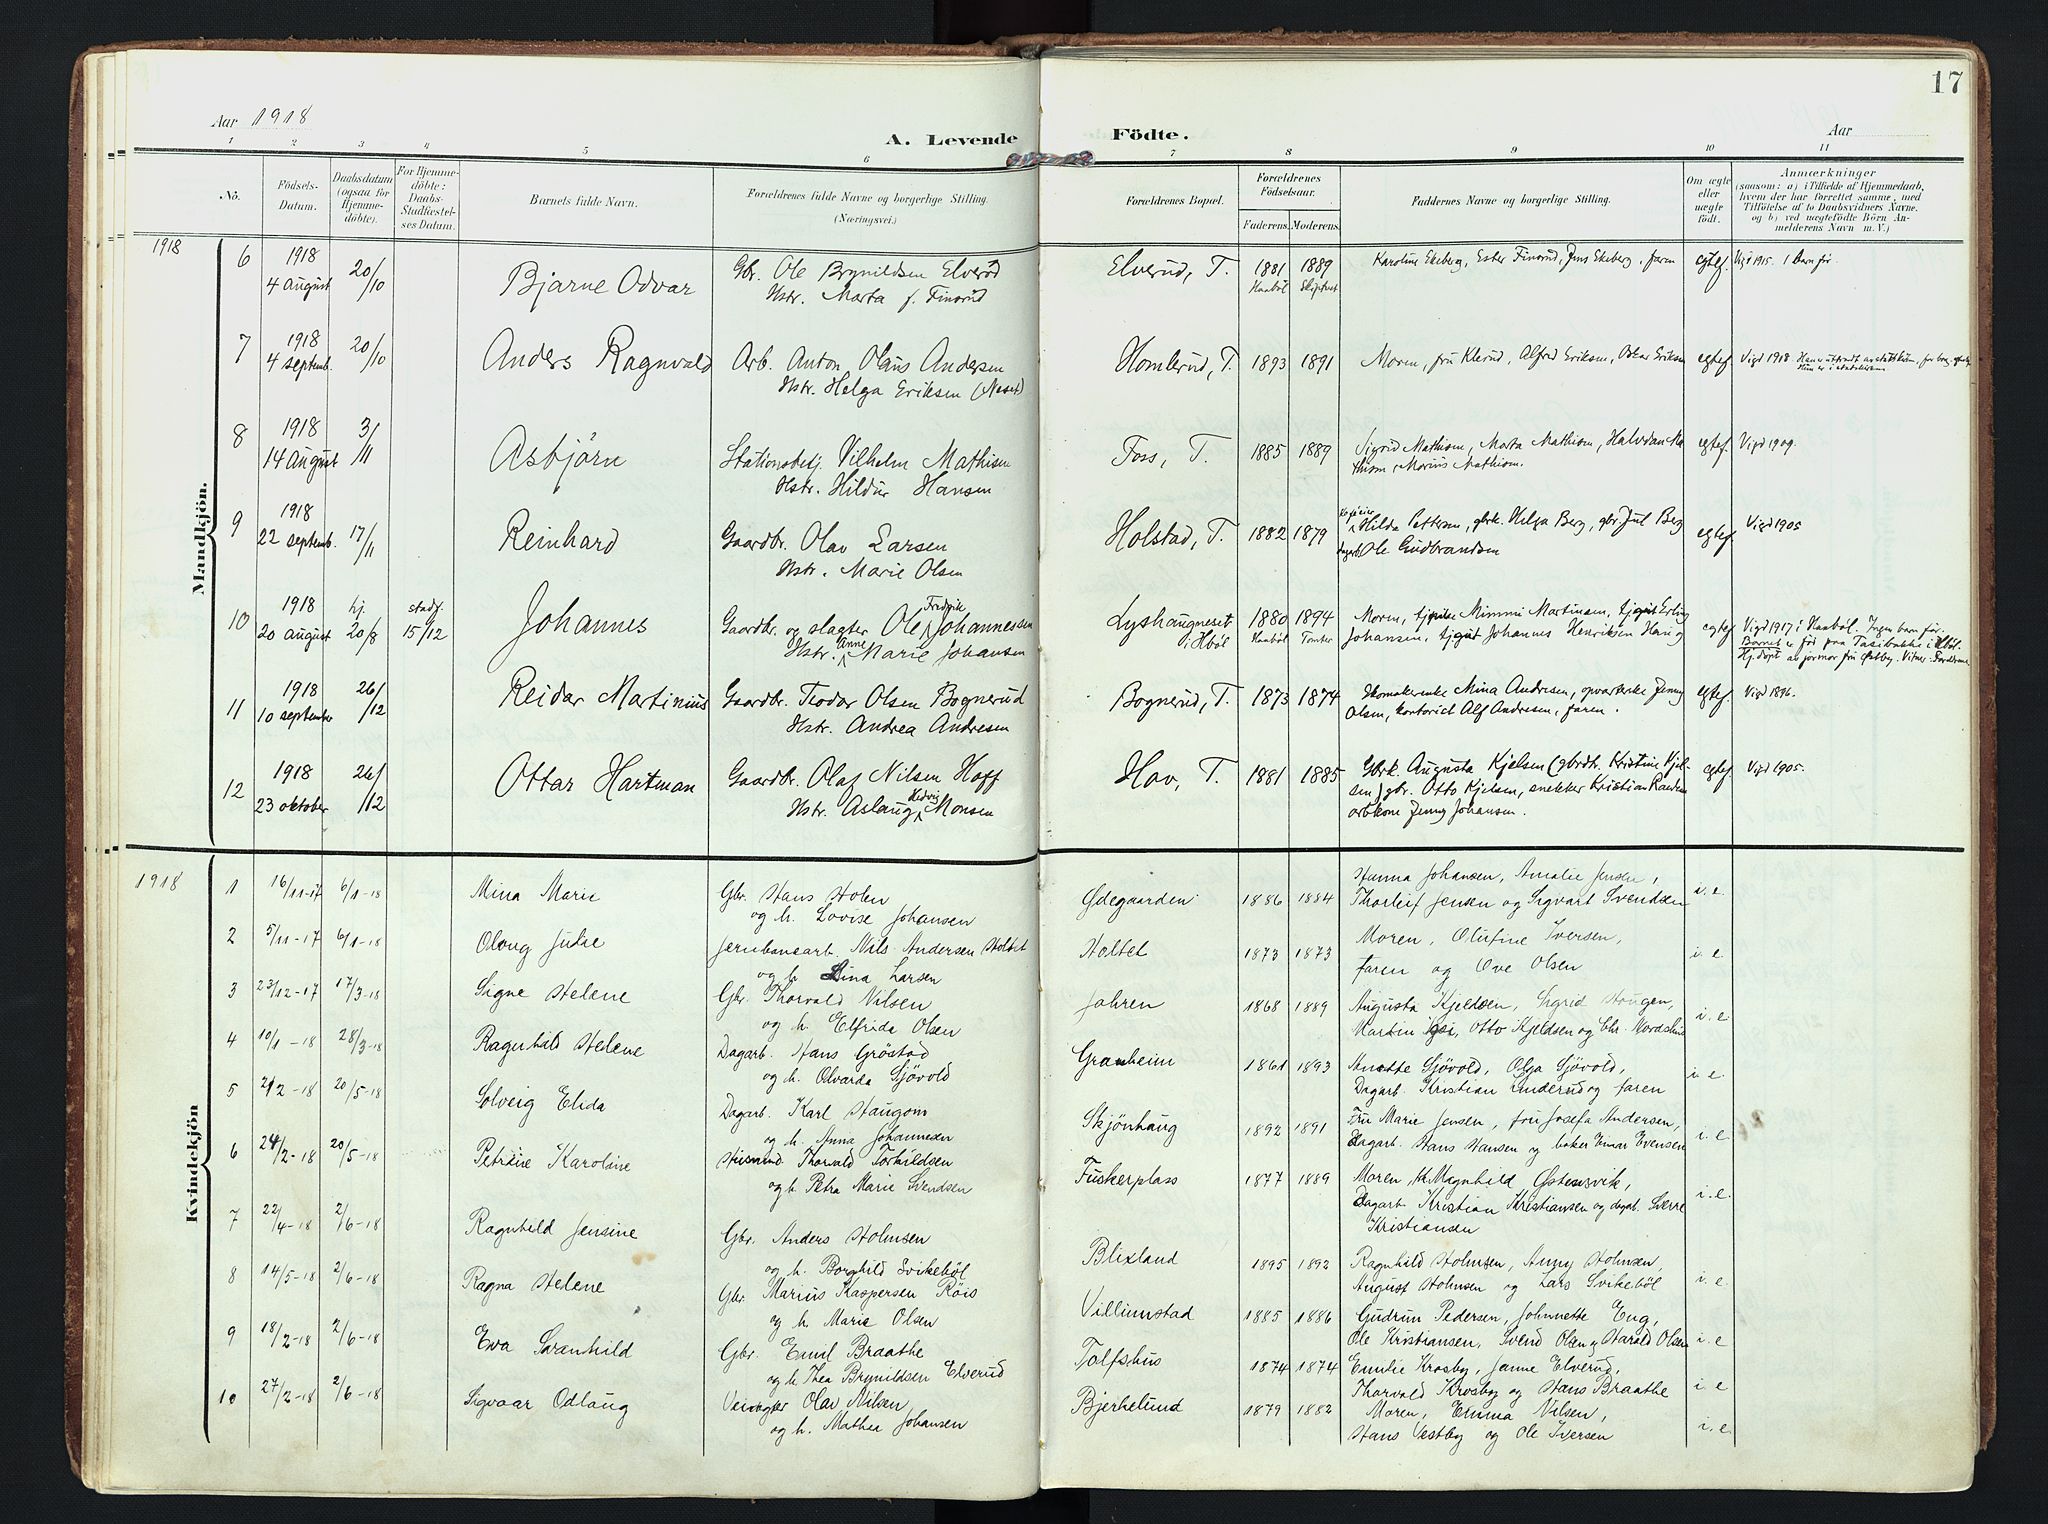 17
Aar 1918
A. Levende Födte.
Aar
1 2 3 4 5 6 7 8 9 10 11
No.
Födsels-Datum.
Daabsdatum (ogsaa for Hjemme-döbte).
For Hjemme-döbte: Daabs-Stadfæstel-ses Datum.
Barnets fulde Navn.
Forældrenes fulde Navne og borgerlige Stilling. (Næringsvei.)
Forældrenes Bopæl.
Forældrenes Födselsaar.
Faderens. Moderens.
Faddernes Navne og borgerlige Stilling.
Om ægte eller uægte födt.
Anmærkninger
(saasom: a) i Tilfælde af Hjemmedaab,
hvem der har forrettet samme, med
Tilföielse af to Daabsvidners Navne,
og b) ved uægtefödte Börn An-
melderens Navn m. V.)
Mandkjön.
1918
6 1918 4 August 20/10 Bjarne Odvar Gbr. Ole Brynildsen Elverød Elverud, T. 1881 1889 Karoline Ekeberg, Ester Finsrud, Jens Ekeberg, faren egtef. Vigd 1915. 1 Barn før.
Hstr. Marta f. Finsrud Haabøl Skiptvet
7 1918 4 septemb. 20/10 Anders Ragnvald Arb. Anton Olaus Andersen Homlerud, T. 1893 1891 Moren, fru Klerud, Alfred Eriksen, Oskar Eriksen egtef. Vigd 1918.
Hstr. Helga Eriksen (Neset)
8 1918 14 August 3/11 Asbjörn Stationsbetj. Vilhelm Mathisen Foss, T. 1885 1889 Sigrid Mathisen, Marta Mathisen, Halvdan Ma- egtef. Vigd 1909.
Hstr. Hildur Hansen thisen, Marius Mathisen.
9 1918 22 septemb. 17/11 Reinhard Gaardbr. Olav Larsen Holstad, T. 1882 1879 Hilda Pettersen, gbrk. Helga Berg, gbr. Jul Berg egtef. Vigd 1905
Hstr. Marie Olsen Ole Gudbrandsen
10 1918 20 august hj. 20/8 stadf. 15/12 Johannes Gaardbr. og slagter Ole Fredrik Johannessen Lyshaugneset i Hböl 1880 1894 Moren, tjpike Mimmi Martinsen, tjgut Erling egtef Vigd 1917 i Haaböl. Ingen barn før.
Hstr. Anne Marie Johansen Haaböl Tomter Johansen, tjgut Johannes Henriksen Haug
11 1918 10 september 26/12 Reidar Martinius Gaardbr. Teodor Olsen Bognerud Bognerud, T. 1873 1874 Skomakerenke Mina Andresen, opvarterske Jenny egtef. Vigd 1896.
Hstr. Andrea Andresen Olsen, kontorist Alf Andresen, faren.
12 1918 23 oktober 26/12 Ottar Hartman Gaardbr. Olaf Nilsen Hoff Hov, T. 1881 1885 Gbrk. Augusta Kjelsen (gbrdtr. Kristine Kjel- egtef. Vigd 1905.
Hstr. Aslaug Hedvig Monsen sen) gbr. Otto Kjelsen, snekker Kristian
arbkone Jenny Johansen.
Kvindekjön
1918
1 16/11-17 6/1-18 Mina Marie Gbr. Hans Holen Ødegaarden 1886 1884 Hanna Johansen, Amalie Jensen, i. e.
og h. Lovise Johansen Thorleif Jensen og Sigvart Svendsen
2 5/11-17 6/1-18 Olaug Julie Jernbanearb. Nils Andersen Holtet Holtet 1873 1873 Moren, Olufine Iversen, i. e
og h. Lina Larsen faren og Ove Olsen
3 23/12-17 17/3-18 Signe Helene Gbr. Thorvald Nilsen Jahren 1868 1889 Augusta Kjeldsen, Sigrid Haugen, i. e
og h. Elfrida Olsen Martin Otto Kjeldsen og Chr.
4 10/1-18 28/3-18 Ragnhild Helene Dagarb. Hans Gröstad Granheim 1861 1893 Anette Sjövold, Olga Sjövold, i e
og h. Olvarda Sjövold Dagarb. Kristian Linderud og faren
5 2/2-18 20/5-18 Solveig Elida Dagarb. Karl Haugom Skjönhaug 1892 1891 Fru Marie Jensen, fru Josefa Andersen, i. e
og h. Anna Johannesen Dagarb. Hans Hansen og baker Einar Evensen
6 24/2-18 20/5-18 Petrine Karoline Husmand Thorvald Torkildsen Fuskerplass 1877 1889 Moren, Magnhild Østensvik, i. e
og h. Petra Marie Svendsen Dagarb. Kristian Kristiansen og dagarb. Sverre
Kristiansen
7 22/4-18 2/6-18 Ragnhild Jensine Gbr. Anders Holmsen Blixland 1895 1892 Ragnhild Holmsen, Anny Holmsen, i. e
og h. Borghild Svikeböl August Holmsen og Lars Svikeböl
8 14/5-18 2/6-18 Ragna Helene Gbr. Marius Kaspersen Röis Villumstad 1885 1886 Gudrun Pedersen, Johnnette Eng, i. e
og h. Marie Olsen Ole Kristiansen, Svend Olsen og Harald Olsen
9 18/2-18 2/6-18 Eva Svanhild Gbr. Emil Braathe Tolfshus 1874 1874 Emilie Krosby, Janne Elverud, i e
og h. Thea Brynildsen Elverud Thorvald Krosby og Hans Braathe
10 27/2-18 2/6-18 Sigvaar Odlaug Veivogter Olav Nilsen Bjerkelund 1879 1882 Moren, Emma Nilsen, i. e
og h. Mathea Johansen Hans Vestby og Ole Iversen